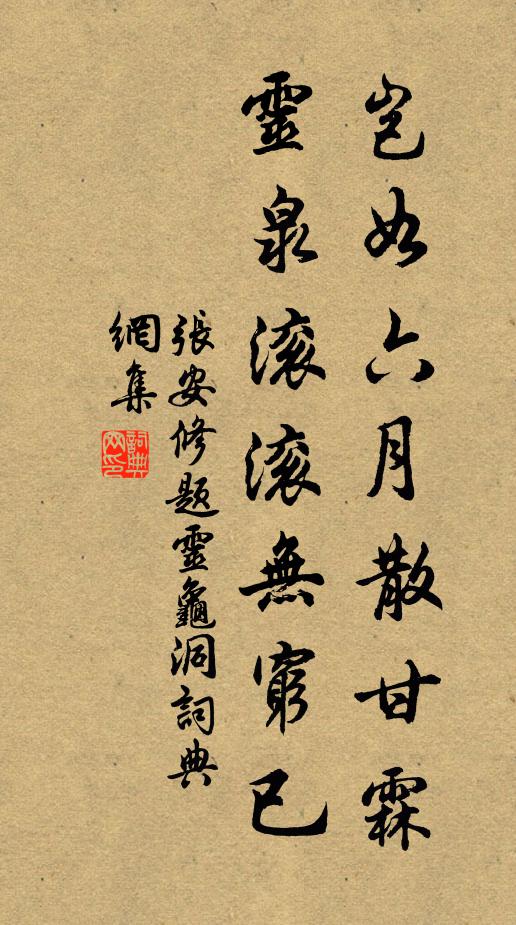 岂如六月散甘霖
靈泉滚滚無窮已
張安修題靈龜洞詞典
網集
詞典
网印